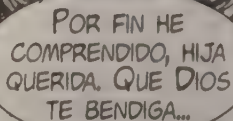 POR FIN HE
COMPRENDIDO, HIJA
QUERIDA. QUE DIOS
TE BENDIGA...